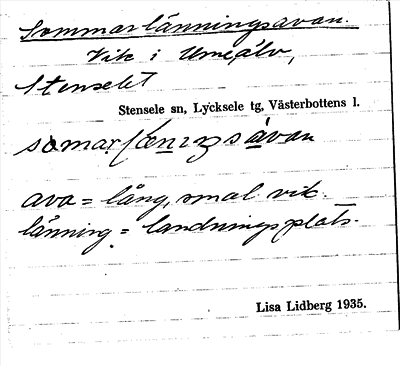 Sommarlänningsavan.
Vik i Umeälv,
Stenselet
Stensele sn, Lycksele tg, Västerbottens l.
somarlæniŋsávan
ava = lång, smal vik.
länning = landningsplats.
Lisa Lidberg 1935.